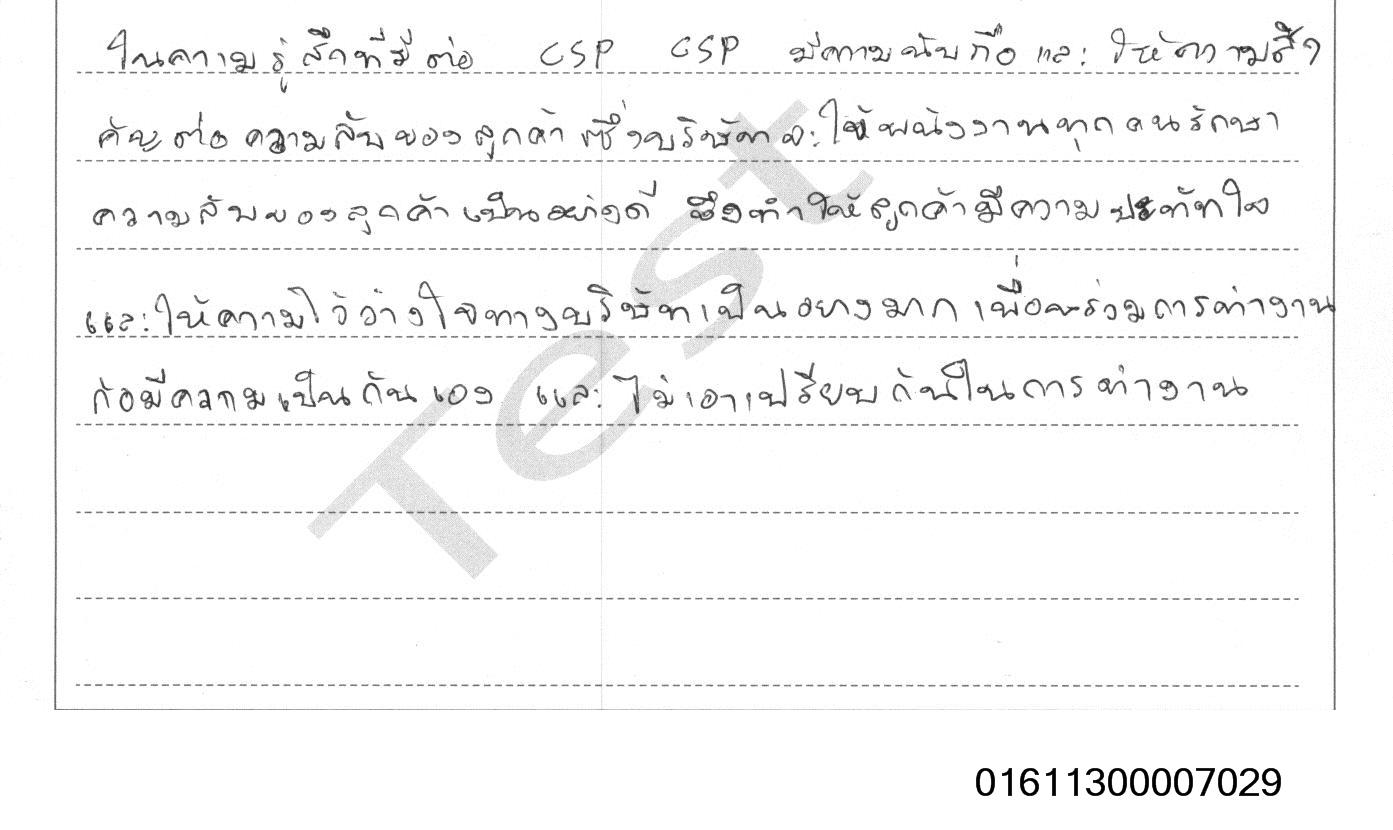 ในความรู้สึกที่มีต่อ CSP CSP มีความนับถือ และ ให้ความสำ
คัญต่อความลับของลูกค้า ซึ่งบริษัทจะให้พนังงานทุกคนรักษา
ความลับของลูกค้าเป็นอย่างดี ซึ่งทำให้ลูกค้ามีความประทัทใจ
และให้ความไว้ว้างใจทางบริษัทเป็นอยางมาก เพื่อจะร่วมการทำงาน
ก้อมีความเป็นกันเอง และ ไม่เอาเปรียบกันในการทำงาน
Test
01611300007029